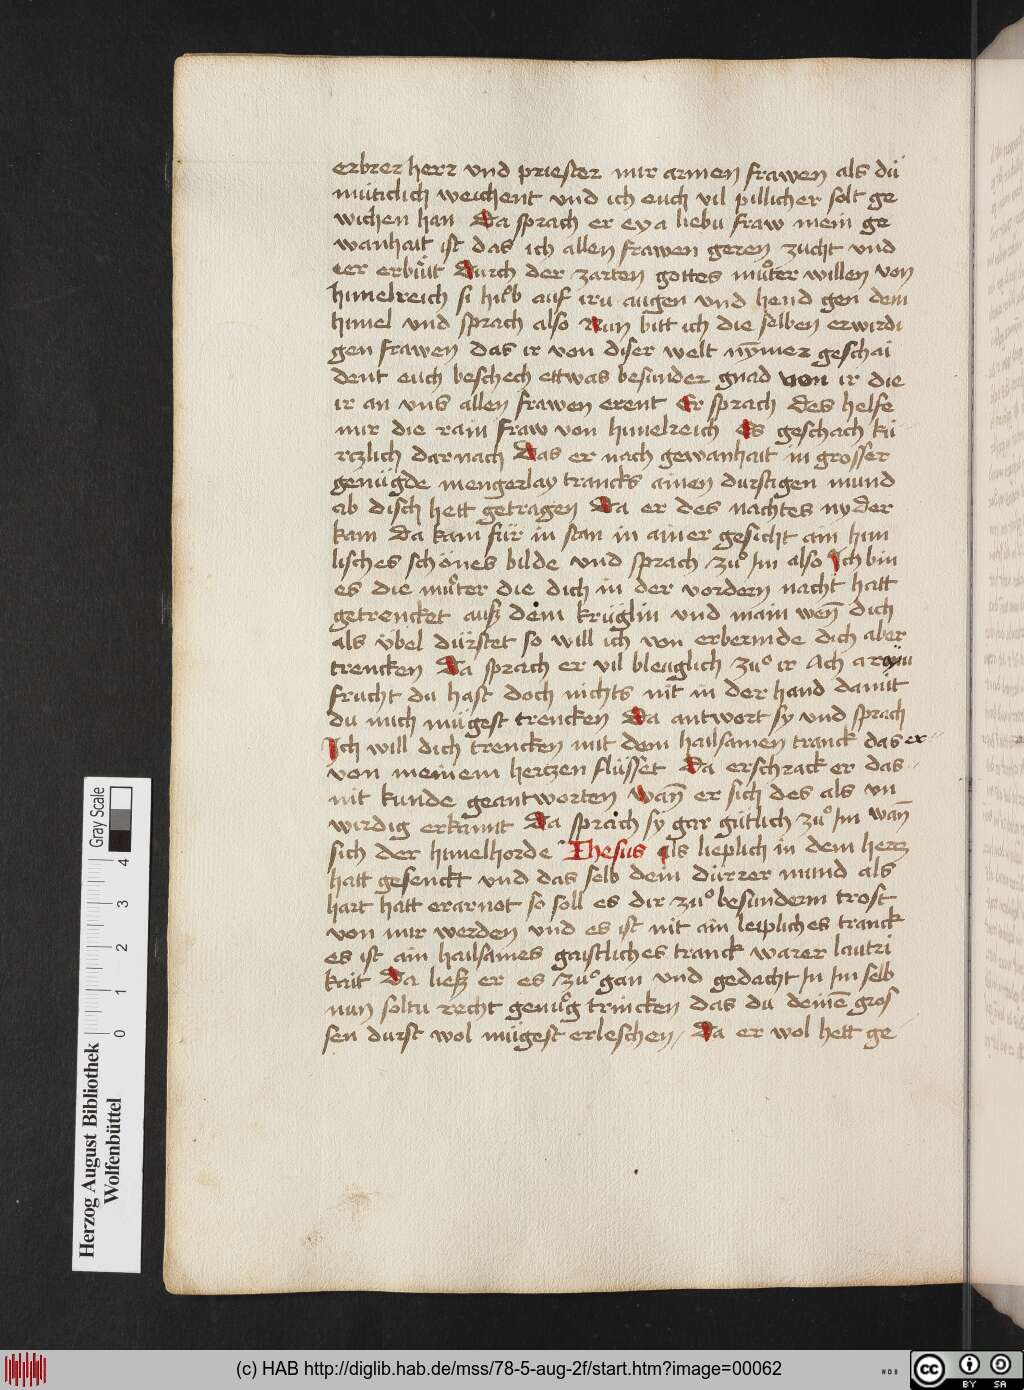 erbrer herr vnd priester mir armen frawen als dü
müticlich weichent vnd ich euch vil pillicher solt ge
wichen han Da sprach er eya liebu fraw mein ge
wanhait ist das ich allen frawen geren zucht vnd
eer erbüt Durch der zarten gottes muͦter willen von
himelreich si huͦb auf iru augen vnd hend gen dem
himel vnd sprach also Nun bitt ich die selben erwirdi
gen frawen das ir von diser welt nÿmer geschai
dent euch beschech ettwas besunder gnad von ir die
ir an vns allen frawen erent Er sprach des helfe
mir die rain fraw von himelreich Es geschach kü
rczlich darnach Das er nach gewanhait in grosser
genügde mengerlay trancks ainen durstigen mund
ab disch hett getragen Da er des nachtes nyder
kam Da kam für in stan in ainer gesicht ain him
lisches schönes bilde vnd sprach zuͦ Im also Ich bin
es die muͦter die dich in der vordern nacht hatt
getrencket auß dem krüglin vnd main wen̄ dich
als vbel dürstet so will ich von erbermde dich aber
trencken Da sprach er vil bleuglich zuͦ ir Ach
frucht du hast doch nichts nit in der hand damit
du mich mügest trencken Da antwort sy vnd sprach
Ich will dich trencken mit dem hailsamen tranck das er
von meinem hertzen flüsset Da erschrack er das
nit kunde geantworten wan̄ er sich des als vn
wirdig erkannt Da sprach sy gar gütlich zuͦ Im wan̄
sich der himelhorde Ihesus als lieplich in dem hertz
hatt gesenckt vnd das selb dein dürrer mund als
hart hatt erarnot so soll es dir zuͦ besunderm trost
von mir werden vnd es ist nit ain leipliches tranck
es ist ain hailsames gaistliches tranck warer lautri
kait Da ließ er es zuͦ gan vnd gedacht In Im selb
nun soltu recht genuͦg trincken das du deinē gros
sen durst wol mügest erleschen / Da er wol hett ge
Herzog August Bibliothek
Wolfenbüttel
Gray Scale
0 1 2 3 4
(c) HAB http://diglib.hab.de/mss/78-5-aug-2f/start.htm?image=00062
WDB
cc BY SA